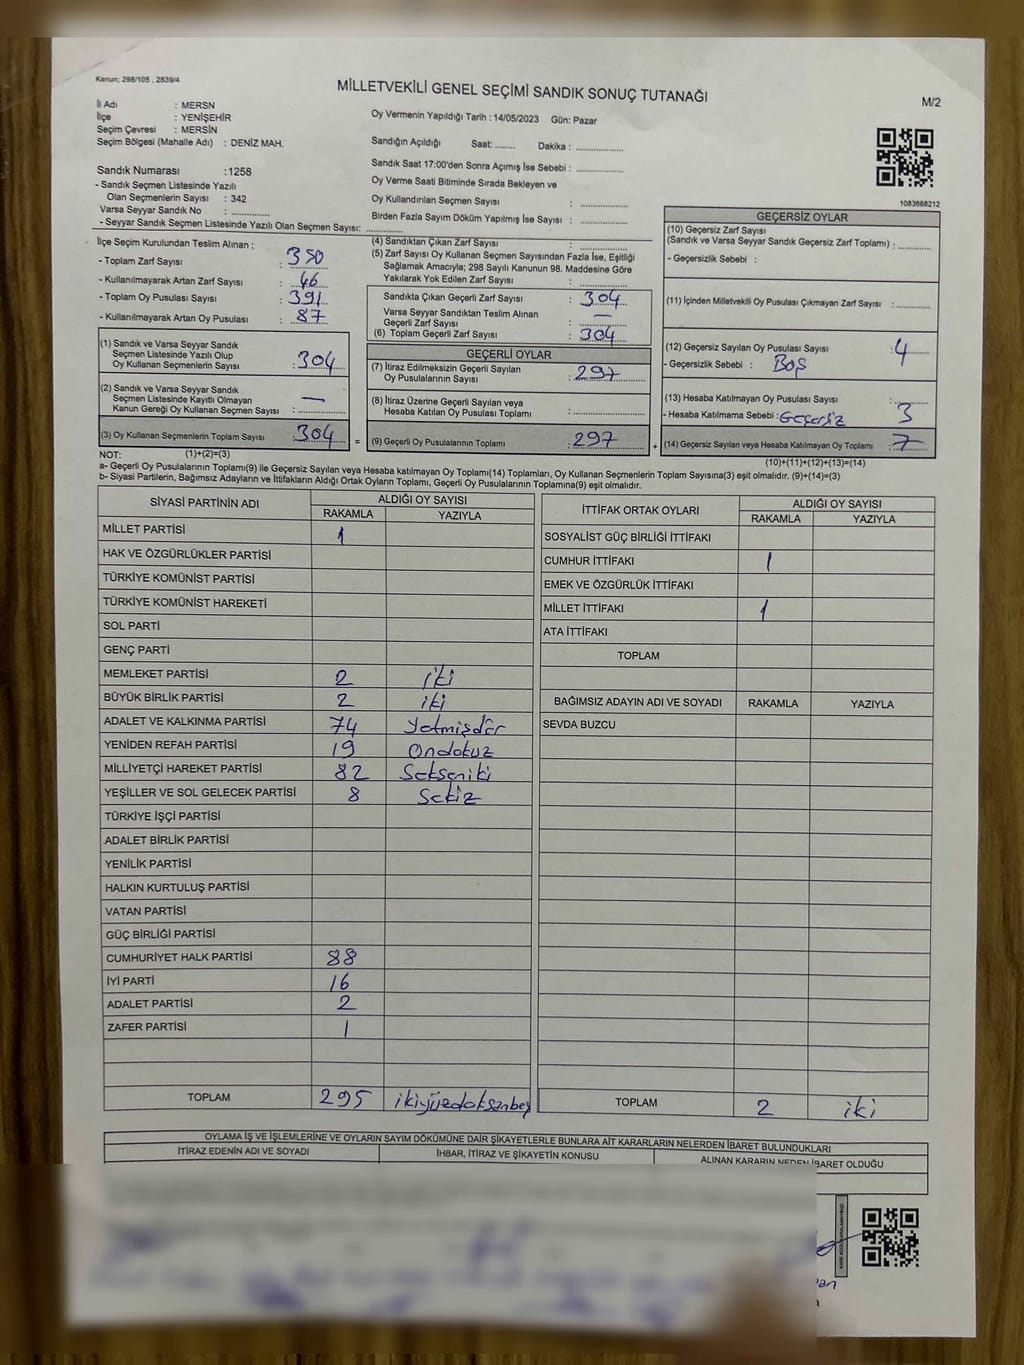 Kanun; 298/105 , 2839/4
MİLLETVEKİLİ GENEL SEÇİMİ SANDIK SONUÇ TUTANAĞI
M/2
İl Adı : MERSN
İlçe : YENİŞEHİR
Seçim Çevresi : MERSİN
Seçim Bölgesi (Mahalle Adı) : DENİZ MAH.
Sandık Numarası :1258
- Sandık Seçmen Listesinde Yazılı
Olan Seçmenlerin Sayısı : 342
Varsa Seyyar Sandık No : ..............
- Seyyar Sandık Seçmen Listesinde Yazılı Olan Seçmen Sayısı: ..............
Oy Vermenin Yapıldığı Tarih : 14/05/2023 Gün: Pazar
Sandığın Açıldığı Saat: ........ Dakika : ..............
Sandık Saat 17:00'den Sonra Açımış İse Sebebi : ..............
Oy Verme Saati Bitiminde Sırada Bekleyen ve
Oy Kullandırılan Seçmen Sayısı : ..............
Birden Fazla Sayım Döküm Yapılmış İse Sayısı : ..............
1083668212
İlçe Seçim Kurulundan Teslim Alınan ;
- Toplam Zarf Sayısı : 350
- Kullanılmayarak Artan Zarf Sayısı : 46
- Toplam Oy Pusulası Sayısı : 391
- Kullanılmayarak Artan Oy Pusulası : 87
(1) Sandık ve Varsa Seyyar Sandık
Seçmen Listesinde Yazılı Olup
Oy Kullanan Seçmenlerin Sayısı : 304
(2) Sandık ve Varsa Seyyar Sandık
Seçmen Listesinde Kayıtlı Olmayan —
Kanun Gereği Oy Kullanan Seçmen Sayısı : ..............
(3) Oy Kullanan Seçmenlerin Toplam Sayısı : 304
(4) Sandıktan Çıkan Zarf Sayısı : ..............
(5) Zarf Sayısı Oy Kullanan Seçmen Sayısından Fazla İse, Eşitliği
Sağlamak Amacıyla; 298 Sayılı Kanunun 98. Maddesine Göre
Yakılarak Yok Edilen Zarf Sayısı : ..............
Sandıkta Çıkan Geçerli Zarf Sayısı : 304
Varsa Seyyar Sandıktan Teslim Alınan
Geçerli Zarf Sayısı : —
(6) Toplam Geçerli Zarf Sayısı : 304
GEÇERLİ OYLAR
(7) İtiraz Edilmeksizin Geçerli Sayılan
Oy Pusulalarının Sayısı : 297
(8) İtiraz Üzerine Geçerli Sayılan veya
Hesaba Katılan Oy Pusulası Toplamı : ..............
= (9) Geçerli Oy Pusulalarının Toplamı : 297 +
GEÇERSİZ OYLAR
(10) Geçersiz Zarf Sayısı
(Sandık ve Varsa Seyyar Sandık Geçersiz Zarf Toplamı) : ..........
- Geçersizlik Sebebi :
(11) İçinden Milletvekili Oy Pusulası Çıkmayan Zarf Sayısı : ..........
(12) Geçersiz Sayılan Oy Pusulası Sayısı : 4
- Geçersizlik Sebebi : Boş
(13) Hesaba Katılmayan Oy Pusulası Sayısı : 3
- Hesaba Katılmama Sebebi : Geçersiz
(14) Geçersiz Sayılan veya Hesaba Katılmayan Oy Toplamı : 7
NOT: (1)+(2)=(3)
(10)+(11)+(12)+(13)=(14)
a- Geçerli Oy Pusulalarının Toplamı(9) ile Geçersiz Sayılan veya Hesaba katılmayan Oy Toplamı(14) Toplamları, Oy Kullanan Seçmenlerin Toplam Sayısına(3) eşit olmalıdır. (9)+(14)=(3)
b- Siyasi Partilerin, Bağımsız Adayların ve İttifakların Aldığı Ortak Oyların Toplamı, Geçerli Oy Pusulalarının Toplamına(9) eşit olmalıdır.
SİYASİ PARTİNİN ADI ALDIĞI OY SAYISI
RAKAMLA YAZIYLA
MİLLET PARTİSİ 1
HAK VE ÖZGÜRLÜKLER PARTİSİ
TÜRKİYE KOMÜNİST PARTİSİ
TÜRKİYE KOMÜNİST HAREKETİ
SOL PARTİ
GENÇ PARTİ
MEMLEKET PARTİSİ 2 iki
BÜYÜK BİRLİK PARTİSİ 2 iki
ADALET VE KALKINMA PARTİSİ 74 Yetmişdör
YENİDEN REFAH PARTİSİ 19 Ondokuz
MİLLİYETÇİ HAREKET PARTİSİ 82 Sekseniki
YEŞİLLER VE SOL GELECEK PARTİSİ 8 Sekiz
TÜRKİYE İŞÇİ PARTİSİ
ADALET BİRLİK PARTİSİ
YENİLİK PARTİSİ
HALKIN KURTULUŞ PARTİSİ
VATAN PARTİSİ
GÜÇ BİRLİĞİ PARTİSİ
CUMHURİYET HALK PARTİSİ 88
İYİ PARTİ 16
ADALET PARTİSİ 2
ZAFER PARTİSİ 1
TOPLAM 295 ikiyüzdoksanbeş
İTTİFAK ORTAK OYLARI ALDIĞI OY SAYISI
RAKAMLA YAZIYLA
SOSYALİST GÜÇ BİRLİĞİ İTTİFAKI
CUMHUR İTTİFAKI 1
EMEK VE ÖZGÜRLÜK İTTİFAKI
MİLLET İTTİFAKI 1
ATA İTTİFAKI
TOPLAM
BAĞIMSIZ ADAYIN ADI VE SOYADI RAKAMLA YAZIYLA
SEVDA BUZCU
TOPLAM 2 iki
OYLAMA İŞ VE İŞLEMLERİNE VE OYLARIN SAYIM DÖKÜMÜNE DAİR ŞİKAYETLERLE BUNLARA AİT KARARLARIN NELERDEN İBARET BULUNDUKLARI
İTİRAZ EDENİN ADI VE SOYADI İHBAR, İTİRAZ VE ŞİKAYETİN KONUSU ALINAN KARARIN NEDEN İBARET OLDUĞU